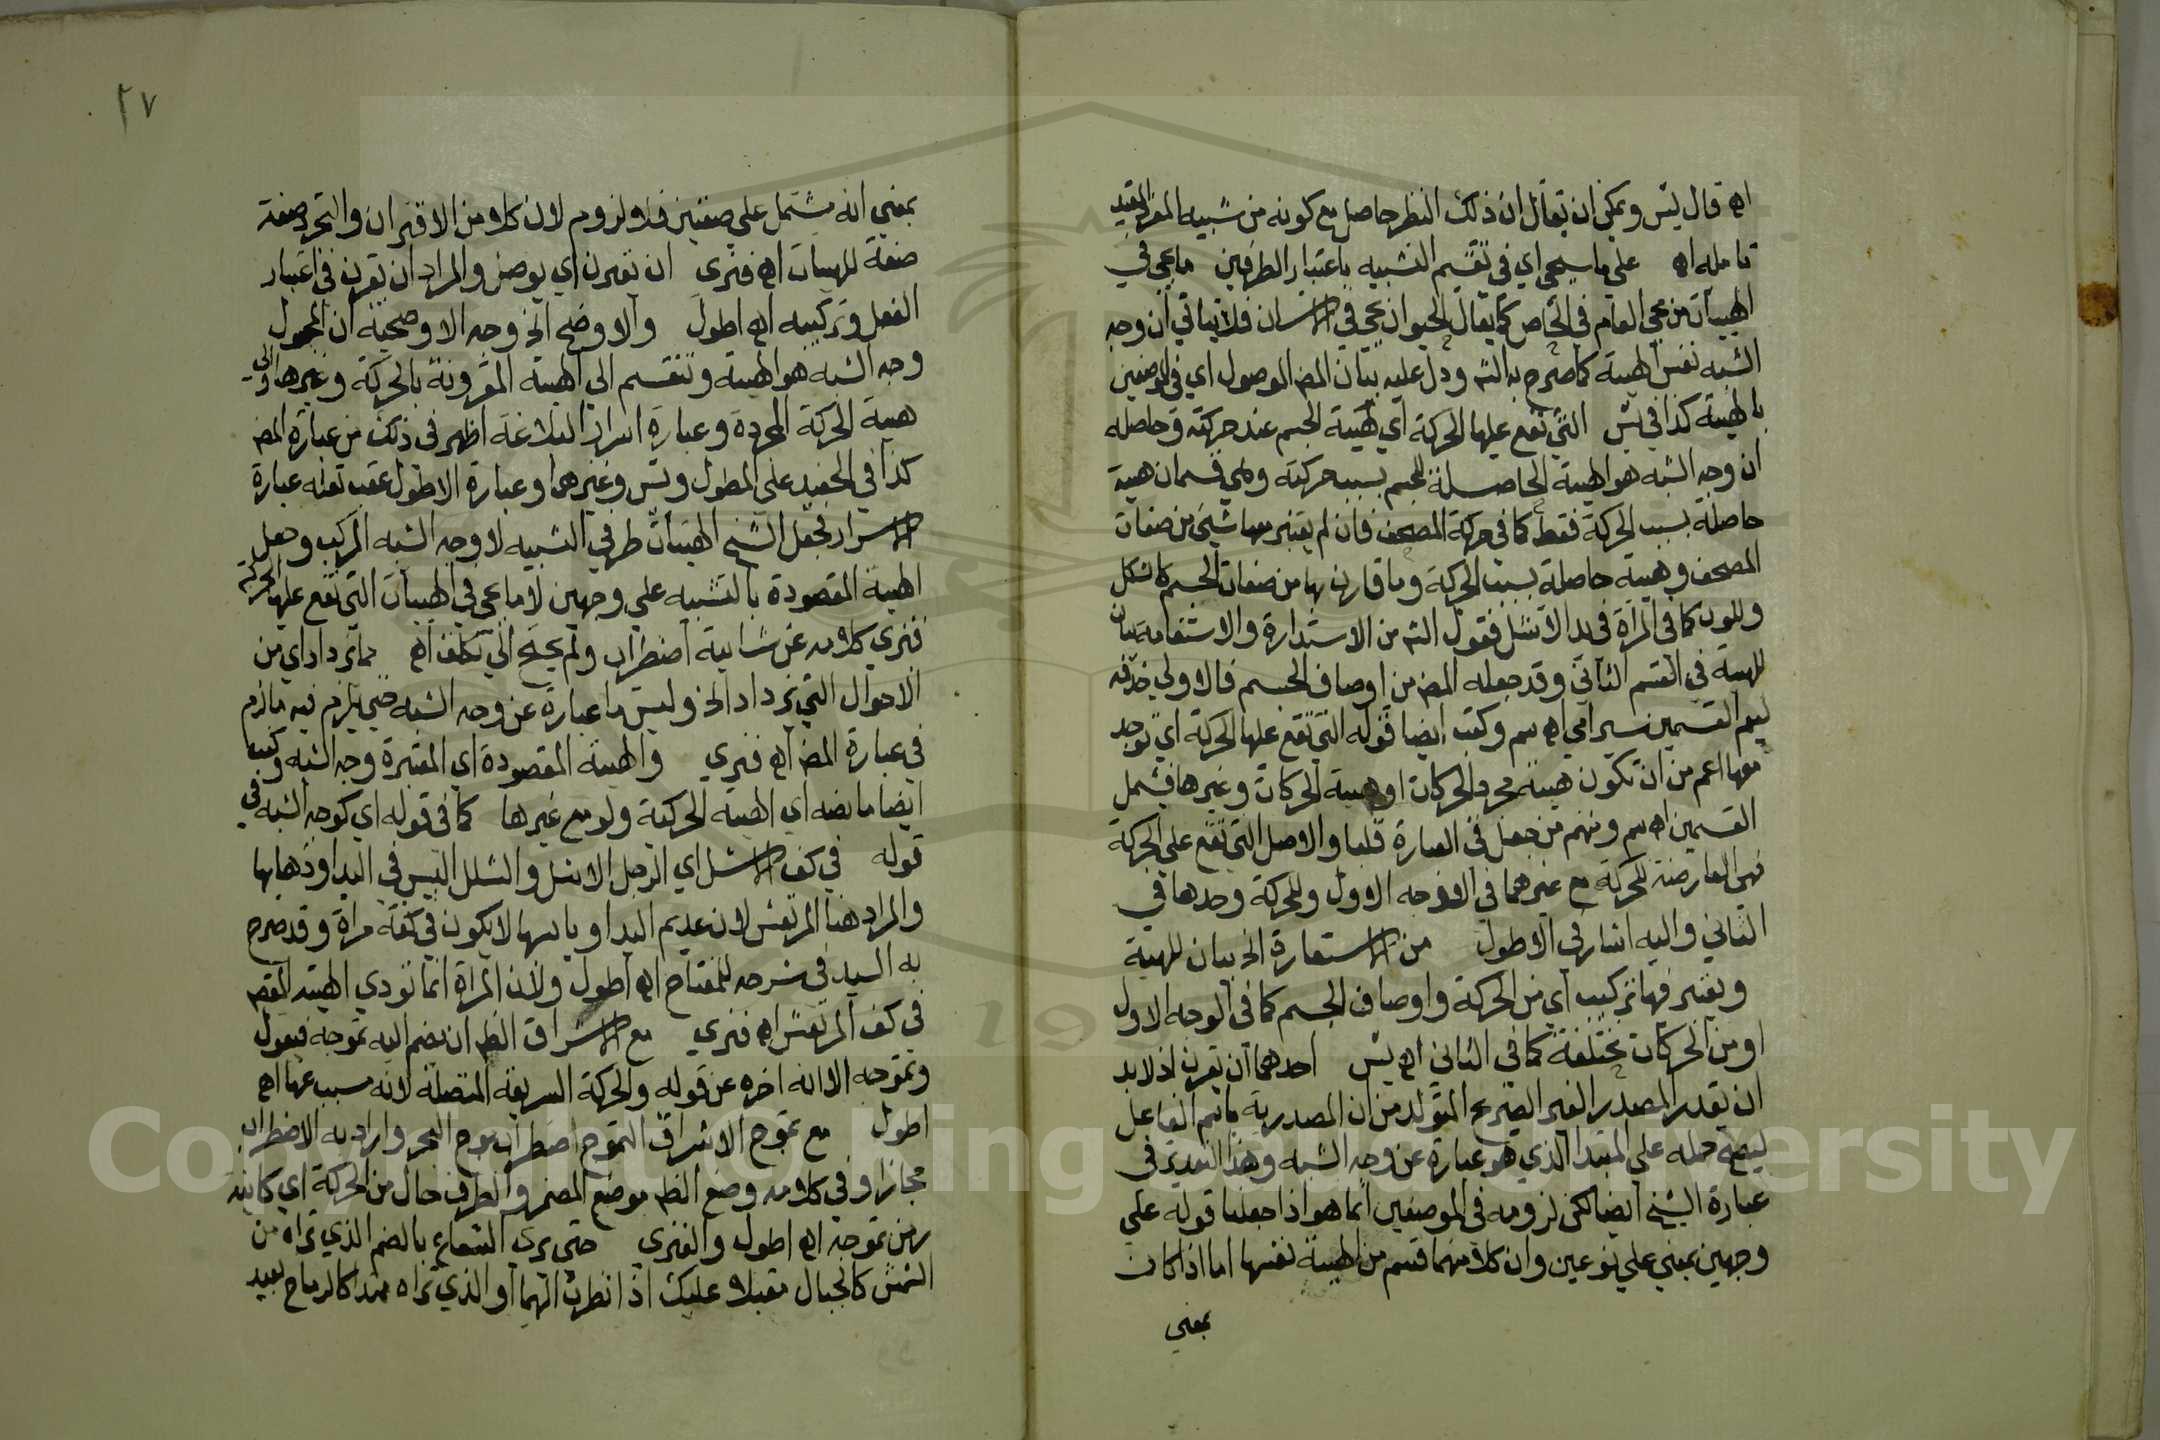 اه قال يس ويمكن ان يقال ان ذلك النظر حاصل مع كونه من تشبيه المفرد المقيد
تامله اه على ما سيجي اي في تقسيم التشبيه باعتبار الطرفين ما يجي في
الهيات من مجي العام في الخاص كما يقال الحيوان يجي في الانسان فلا ينافي ان وجه
الشبه نفس الهيئة كما صرح به الشه ودل عليه بيان المص الموصول اي في الموضعين
بالهيئة كذا في يس التي تقع عليها الحركة اي هيئة الجسم عند حركته وحاصله
ان وجه الشبه هو الهيئة الحاصلة للجسم بسبب حركته وهي قسمان هيئة
حاصلة بسبب الحركة فقط كما في حركة المصحف فان لم يعتبر معها شيء من صفات
المصحف وهيئة حاصلة بسبب الحركة وما قارنها من صفات الجسم كالشكل
واللون كما في المرآة في يد الاشل فقول الشه من الاستدارة والاستقامة بيان
للهيئة في القسم الثاني وقد جعله المص من اوصاف الجسم فالاولى حذفه
ليعم القسمين سيرامي اه سم وكتب ايضا قوله التي تقع عليها الحركة اي توجد
معها اعم من ان تكون هيئة مجرد الحركات او هيئة الحركات وغيرها فيشمل
القسمين اه سم ومنهم من جعل في العبارة قلبا والاصل التي تقع على الحركة
فهي العارضة للحركة مع غيرهما في الوجه الاول وللحركة وحدها في
الثاني واليه اشار في الاطول من الاستعارة الخ بيان للهيئة
ويعتبر فيها تركيب اي من الحركة واوصاف الجسم كما في الوجه الاول
او من الحركات مختلفة كما في الثاني اه يس احدهما ان تقرن اذ لا بد
ان يقدر المصدر الغير الصريح المتولد من ان المصدرية باسم الفاعل
ليصح حمله على المبتدا الذي هو عبارة عن وجه الشبه وهذا التقدير في
عبارة الشيخ ايضا لكن لزومه في الموضعين انما هو اذا جعلنا قوله على
وجهين بمعنى على نوعين وان كلا منهما قسم من الهيئة نفسها اما اذا كان
بمعنى
٢٧
بمعنى انه مشتمل على صفتين فلا لزوم لان كلا من الاقتران والتجرد صفة
صفة للهيات اه فنرى ان تقرن اي يوصف والمراد ان تقرن في اعتبار
الفعل وتركيبه اه اطول والاوضح الخ وجه الاوضحية ان المجعول
وجه الشبه هو الهيئة وتنقسم الى الهيئة المقرونة بالحركة وغيرها والى
هيئة الحركة المجردة وعبارة اسرار البلاغة اظهر في ذلك من عبارة المص
كذا في الحفيد على المطول ويس وغيرهما وعبارة الاطول عقب نقله عبارة
الاسرار فجعل الشيخ الهيات طرفي التشبيه لا وجه الشبه المركب وجعل
الهيئة المقصودة بالتشبيه على وجهين لا ما يجي في الهيات التي تقع عليها الحركة
فنري كلامه عن شائبة اضطراب ولم يحتج الى تكلف اه مما يزداد اي من
الاحوال التي يزداد الخ وليس ما عبارة عن وجه الشبه حتى يلزم فيه ما لزم
في عبارة المص اه فنري والهيئة المقصودة اي المعتبرة وجه الشبه وكتب
ايضا ما نصه اي الهيئة الحركية ولو مع غيرها كما في قوله اي كوجه الشبه في
قوله في كف الاشل اي الرجل الاشل والشلل اليبس في اليد او ذهابها
والمراد هنا المرتعش لان عديم اليد او يابسها لا يكون في كفه مرآة وقد صرح
به السيد في شرحه للمفتاح اه اطول ولان المرآة انما تودي الهيئة المقص
في كف المرتعش اه فنري مع الاشراق الظ ان يضم اليه تموجه فيقول
وتموجه الا انه اخره عن قوله والحركة السريعة المتصلة لانه مسبب عنها اه
اطول مع تموج الاشراق التموج اضطراب موج البحر واراد به الاضطراب
مجازا وفي كلامه وضع الظ موضع المضمر والظرف حال من الحركة اي كائنة
من تموجه اه اطول والفنري حتى يرى الشعاع بالضم الذي تراه من
الشمس كالحبال مقبلا عليك اذا نظرت اليها او الذي تراه ممتدا كالرماح بعيد